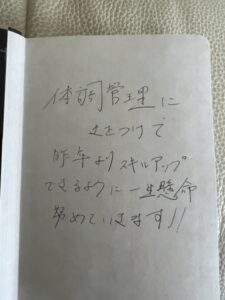 体調管理に
気をつけて
昨年よりスキルアップ
できるように一生懸命
努めていきます!!